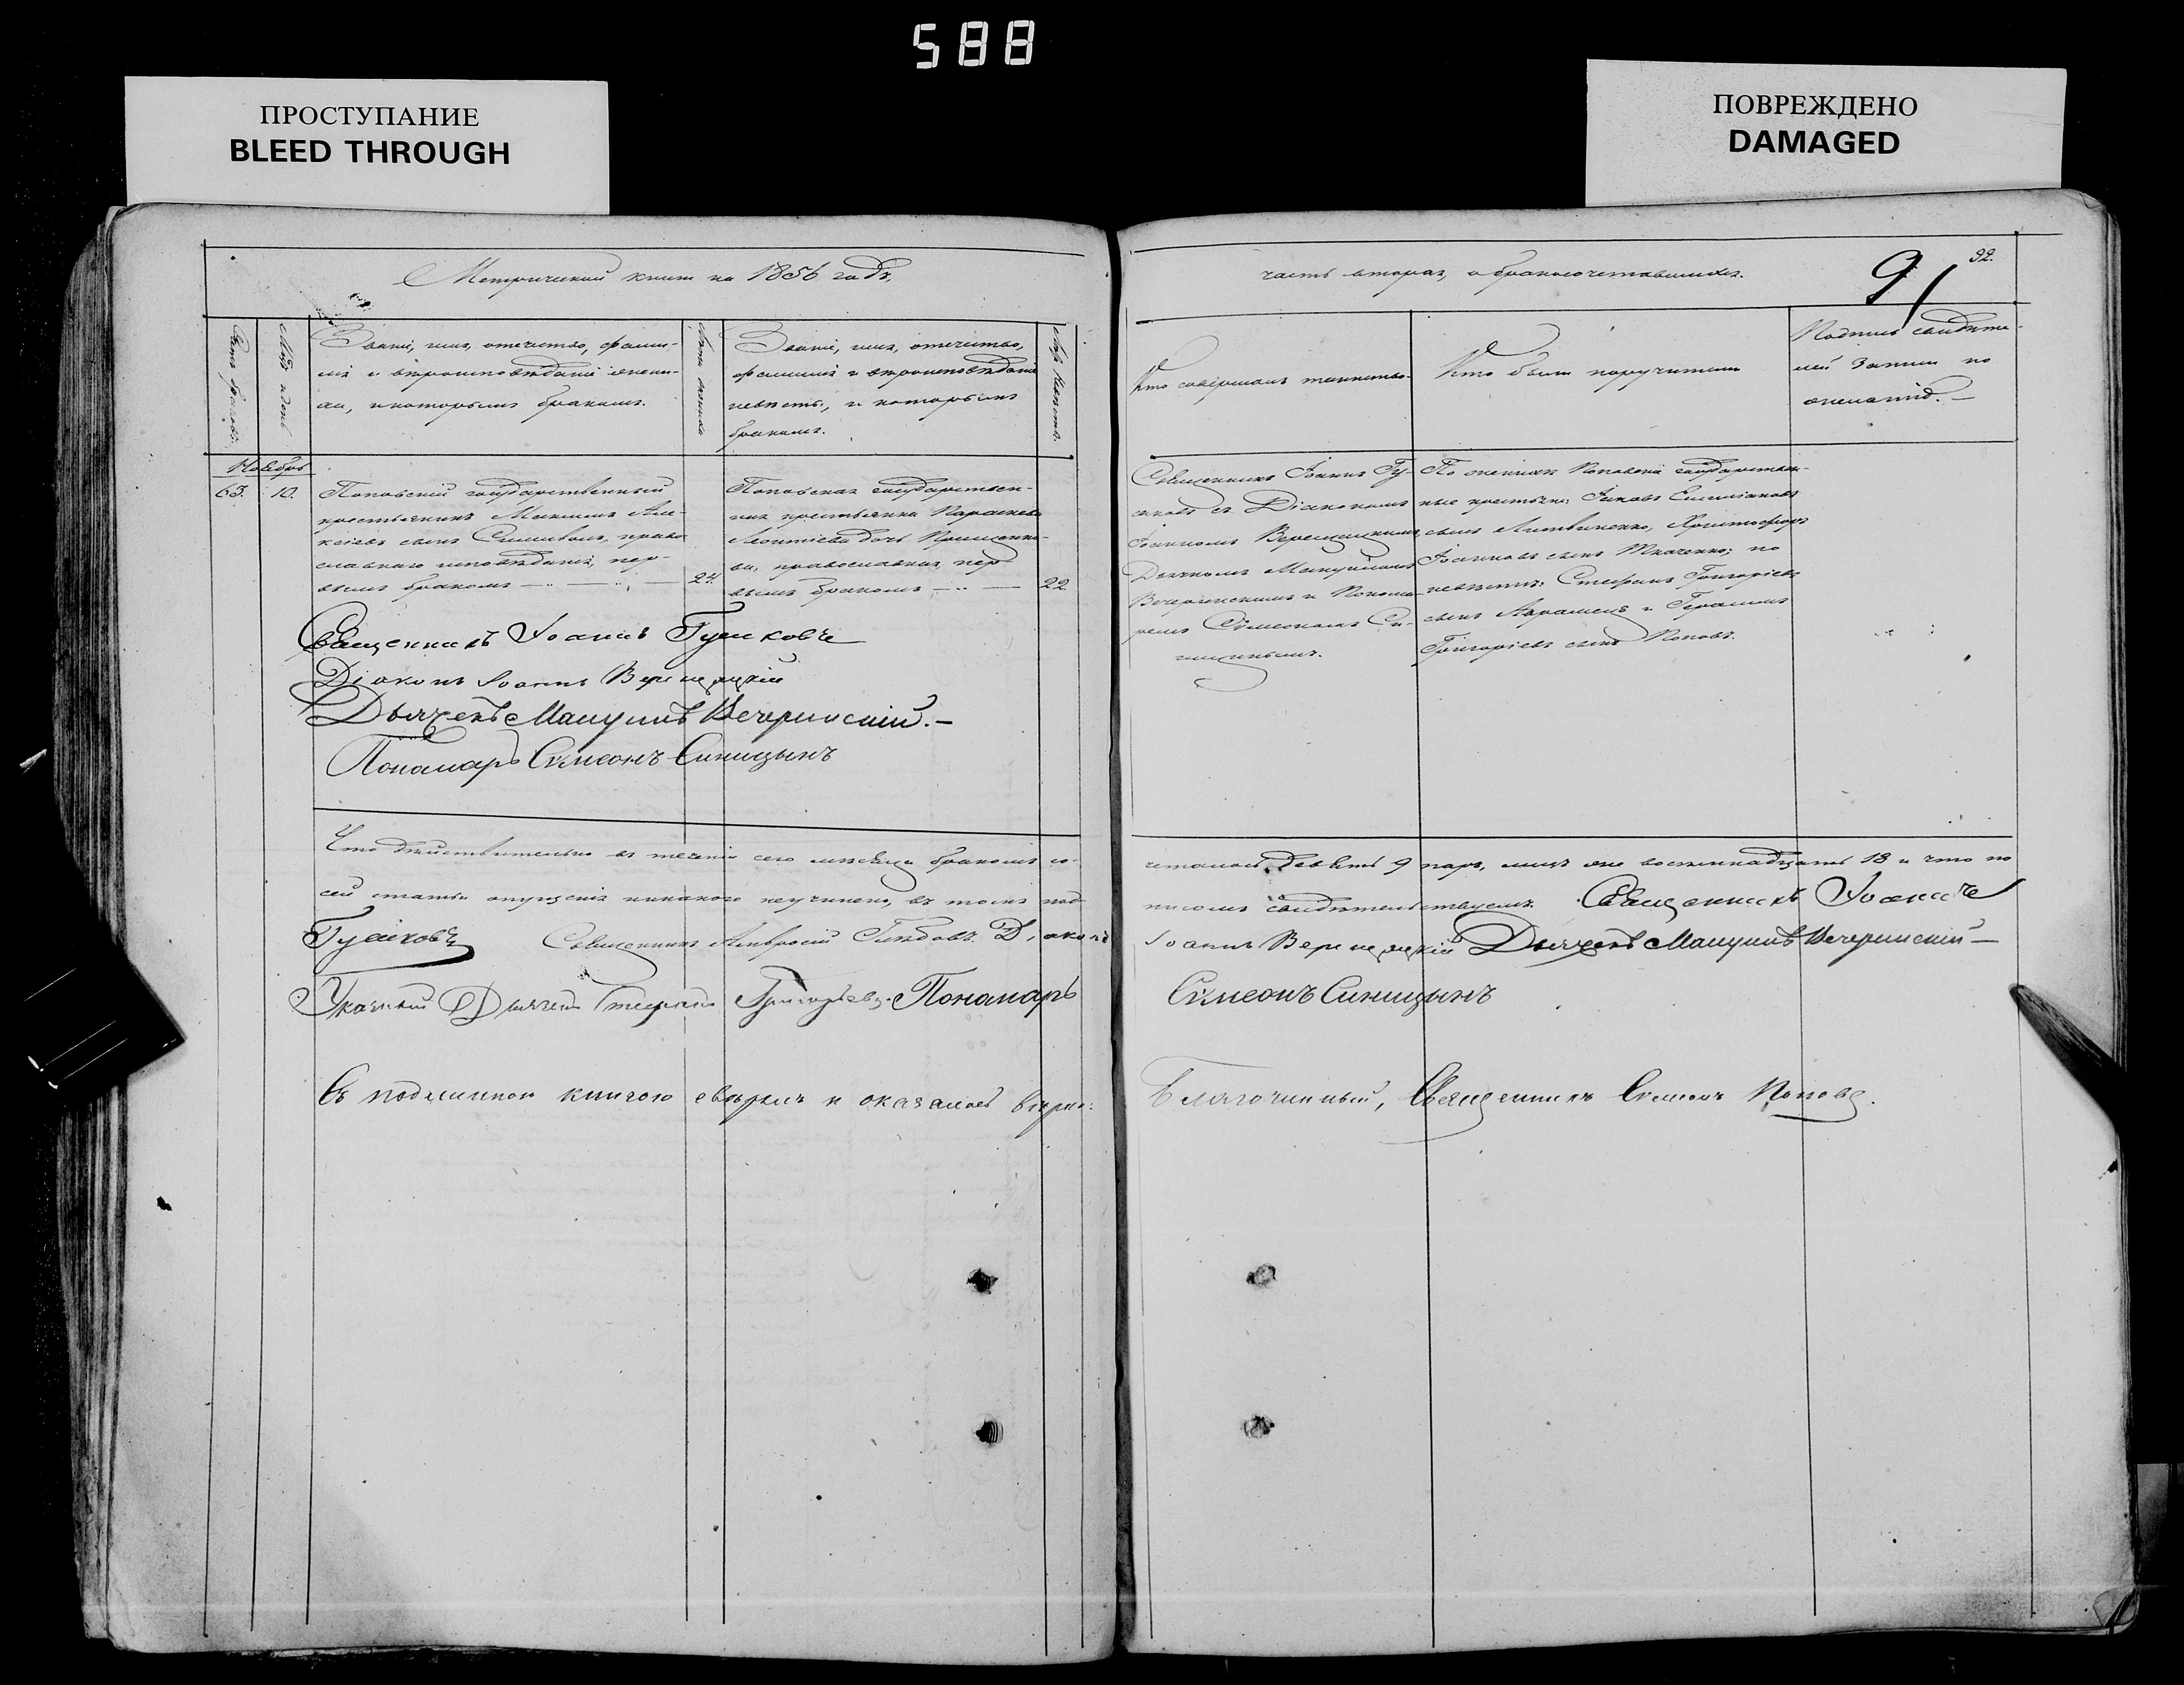 588
ПРОСТУПАНИЕ
BLEED THROUGH
ПОВРЕЖДЕНО
DAMAGED
Метрической книги на 1856 годъ,
часть вторая, о бракосочетавшихся.
91
92.
Счетъ браковъ.
Мѣсяцъ и день
Званіе, имя, отечество, фами-
лія и вѣроисповѣданіе жени-
ха, и которымъ бракомъ.
Лѣта жениха
Званіе, имя, отечество,
фамилія и вѣроисповѣданіе
невѣсты, и которымъ
бракомъ.
Лѣта невѣсты.
Кто совершалъ таинство.
Кто были поручители
Подпись свидѣте-
лей записи по
желанію.
Ноябрь
63. 10.
Поповскій государственный
крестьянинъ Максимъ Але-
ксѣевъ сынъ, право-
славнаго исповѣданія, пер-
вымъ бракомъ 24.
Поповская государствен-
ная крестьянка Параскева
Леонтіева дочь
ва, православная, пер-
вымъ бракомъ 22
Священникъ Іоаннъ Гу-
ковъ съ Діакономъ
Іоанномъ Верещацкимъ,
Дьячкомъ Мануиломъ
Вечеринскимъ и Понома-
ремъ Сѵмеономъ Си-
ницынымъ.
По женихѣ Поповскіе государствен-
ные крестьяне: Іаковъ
сынъ Литвиненко, Христофоръ
Іоанновъ сынъ Ткаченко; по
невѣстѣ: Стефанъ Григоріевъ
сынъ Авраменко и Герасимъ
Григоріевъ сынъ Поповъ.
Священникъ Іоаннъ
Діаконъ Іоаннъ Верещацкій
Дьячекъ Мануилъ Вечеринскій.
Пономарь Сѵмеонъ Синицынъ
Что дѣйствительно въ теченіи сего мѣсяца бракомъ со-
четалось девять 9 паръ, лицъ же восемнадцать 18 и что по
сей статьи опущенія никакого неучинено, въ томъ под-
писомъ свидѣтельствуемъ. Священникъ Іоаннъ
Священникъ Амвросій Глѣбовъ. Діаконъ
Іоаннъ Верещацкій Дьячекъ Мануилъ Вечеринскій
Указный Дьячекъ Стефанъ Григорьевъ. Пономарь
Сѵмеонъ Синицынъ
Съ подлинною книгою свѣрялъ и оказалось вѣрно:
Благочинный, Священникъ Сѵмеонъ Поповъ.